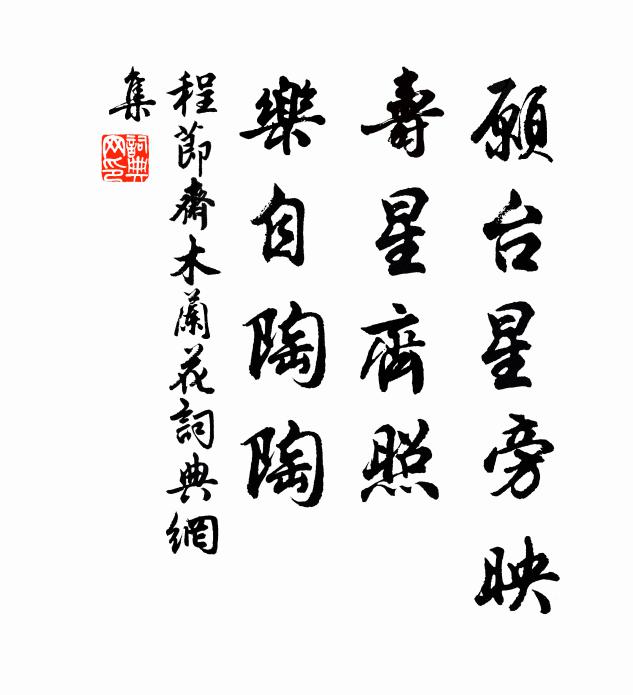 願台星旁映
壽星齊照
樂自陶陶
程節齋木蘭花詞典網
集
詞典
网印